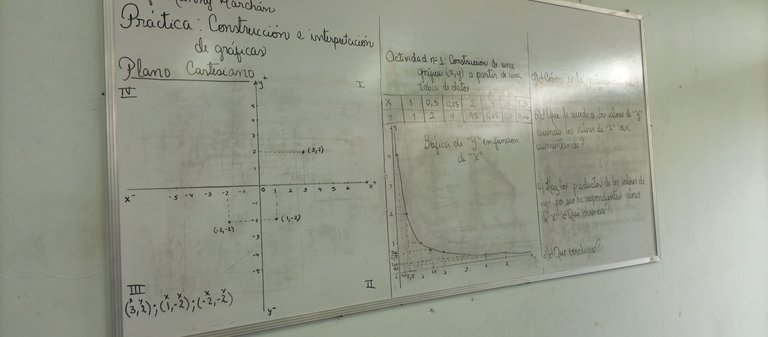 Marchán
Práctica: Construcción e interpretación
de gráficas
Plano Cartesiano
IV
y+
I
(3,2)
x-
-5 -4 -3 -2 -1 0 1 2 3 4 5 6
x+
(-2,-2)
(1,-2)
III
II
y-
x y x y x y
(3,2);(1,-2);(-2,-2)
Actividad n=1: Construcción de una
gráfica (x,y) a partir de una
tabla de datos
X 1 0,5 0,25 2
Y 1 2 4 0,5 0,25
Gráfica de "Y" en función
de "X"
a) ¿Cómo es la gráfica
b) ¿Qué le sucede a los valores de "y"
cuando los valores de "x" van
aumentando?
c) Haz los productos de los valores de
"y" por sus correspondientes valores
de "x" ¿Qué observas?
d) ¿Qué concluyes?